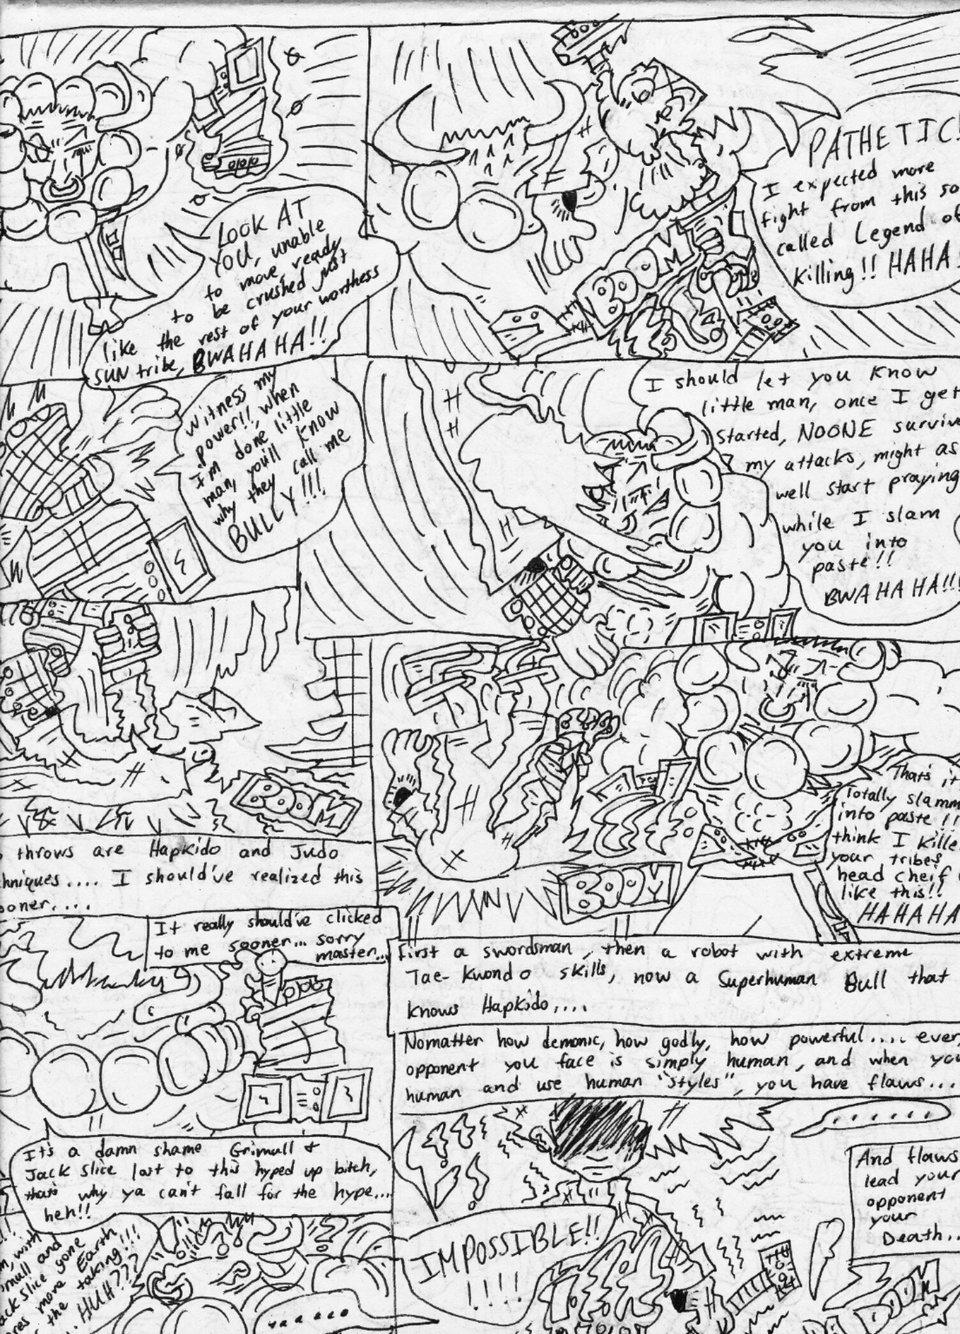 LOOK AT
YOU, unable
to move ready
to be crushed just
like the rest of your worthess
SUN tribe, BWAHAHA!!
PATHETIC!
I expected more
fight from this so
called Legend of
Killing!! HAHA!
BOOM
Witness my
power!!, when
I'm done little
man, you'll know
why they call me
BULLY!!!
I should let you know
little man, once I get
started, NOONE survive
my attacks, might as
well start praying
while I slam
you into
paste!!
BWAHAHA!!!
BOOOM
throws are Hapkido and Judo
chniques.... I should've realized this
ooner....
BOOM
That's it
Totally slamm
into paste!!
think I kille
your tribes
head cheif
like this!!
HAHAHA
It really should've clicked
to me sooner... sorry
master...
First a swordsman, then a robot with extreme
Tae-Kwondo skills, now a Superhuman Bull that
knows Hapkido....
Nomatter how demonic, how godly, how powerful.... ever
opponent you face is simply human, and when you
human and use human "styles", you have flaws...
It's a damn shame Grimull &
Jack Slice lost to this hyped up bitch,
thats why ya can't fall for the hype...
heh!!
with
mull and
ack Slice gone
res more Earth
the taking!!!
HUH???
IMPOSSIBLE!!
!!!!
And flaws
lead your
opponent
your
Death...